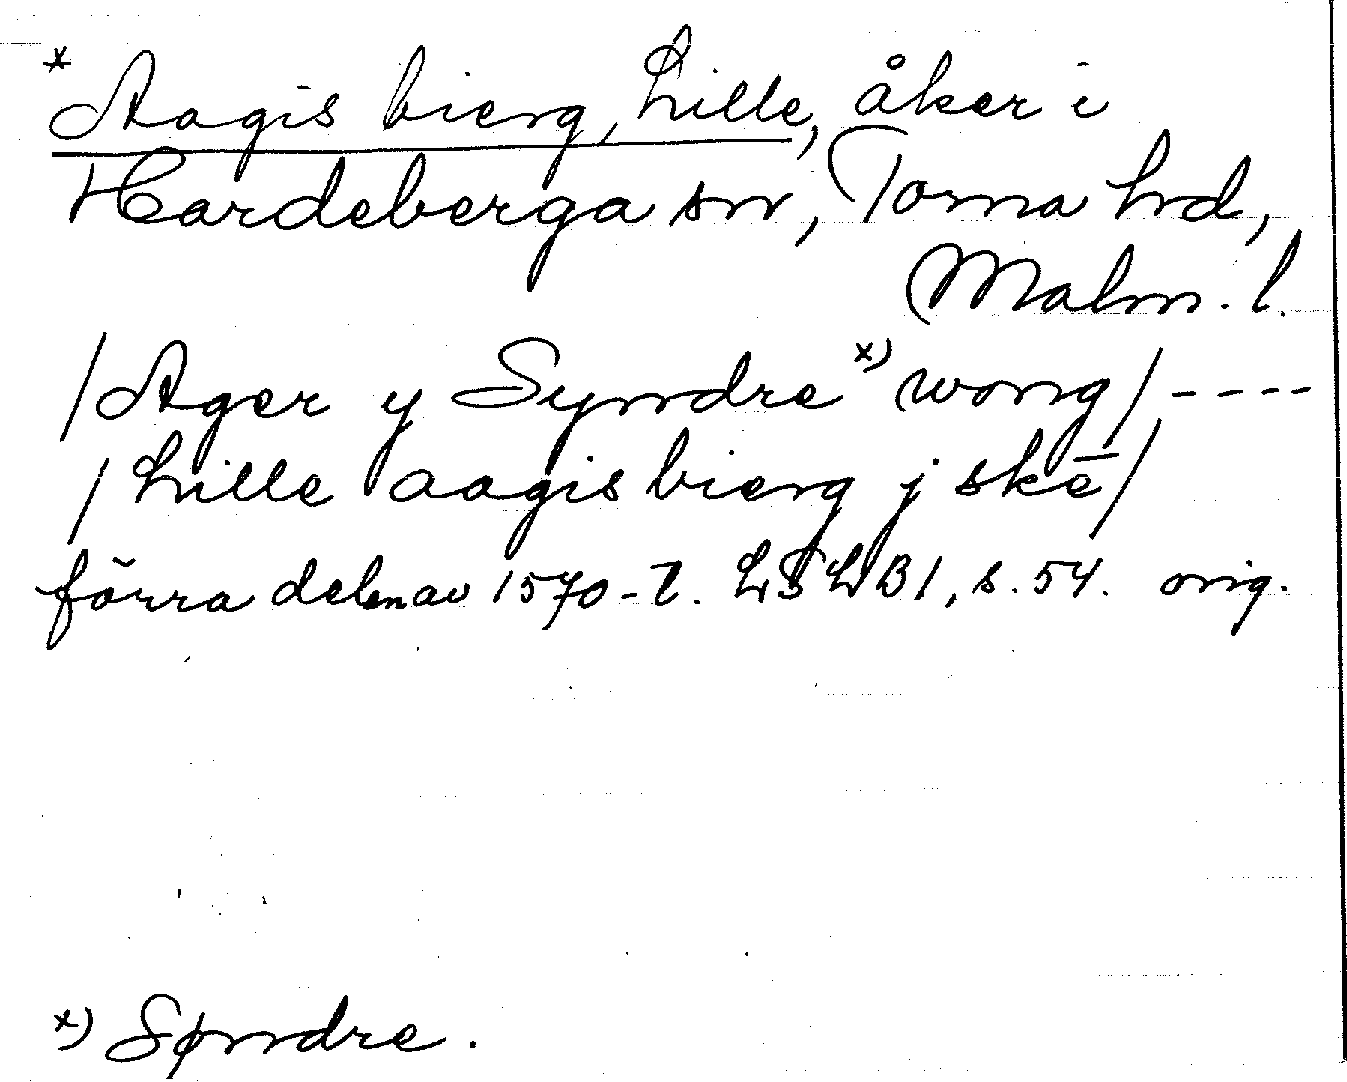 * Aagis bierg, Lille, åker i
Hardeberga sn, Torna hd,
Malm. l.
/Ager y Syndre x) wong/ ----
/Lille aagis bierg j skē/
förra delen av 1570-t. LSLB 1, s. 54. orig.
x) Søndre.